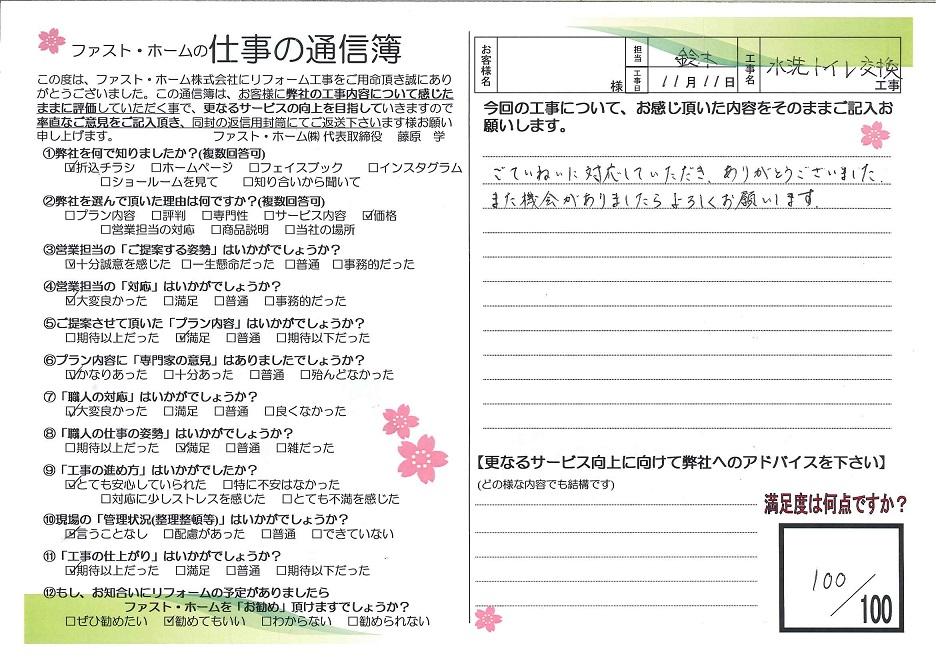 ファスト・ホームの仕事の通信簿
この度は、ファスト・ホーム株式会社にリフォーム工事をご用命頂き誠にあり
がとうございました。この通信簿は、お客様に弊社の工事内容について感じた
ままに評価していただく事で、更なるサービスの向上を目指していきますので
率直なご意見をご記入頂き、同封の返信用封筒にてご返送下さいます様お願い
申し上げます。 ファスト・ホーム㈱ 代表取締役 藤原 学
①弊社を何で知りましたか?(複数回答可)
☑折込チラシ □ホームページ □フェイスブック □インスタグラム
□ショールームを見て □知り合いから聞いて
②弊社を選んで頂いた理由は何ですか?(複数回答可)
□プラン内容 □評判 □専門性 □サービス内容 ☑価格
□営業担当の対応 □商品説明 □当社の場所
③営業担当の「ご提案する姿勢」はいかがでしょうか?
☑十分誠意を感じた □一生懸命だった □普通 □事務的だった
④営業担当の「対応」はいかがでしょうか?
☑大変良かった □満足 □普通 □事務的だった
⑤ご提案させて頂いた「プラン内容」はいかがでしょうか?
□期待以上だった ☑満足 □普通 □期待以下だった
⑥プラン内容に「専門家の意見」はありましたでしょうか?
☑かなりあった □十分あった □普通 □殆んどなかった
⑦「職人の対応」はいかがでしょうか?
☑大変良かった □満足 □普通 □良くなかった
⑧「職人の仕事の姿勢」はいかがでしょうか?
□期待以上だった ☑満足 □普通 □雑だった
⑨「工事の進め方」はいかがでしたか?
☑とても安心していられた □特に不安はなかった
□対応に少しストレスを感じた □とても不満を感じた
⑩現場の「管理状況(整理整頓等)」はいかがでしょうか?
☑言うことなし □配慮があった □普通 □できていない
⑪「工事の仕上がり」はいかがでしょうか?
☑期待以上だった □満足 □普通 □期待以下だった
⑫もし、お知合いにリフォームの予定がありましたら
ファスト・ホームを「お勧め」頂けますでしょうか?
□ぜひ勧めたい ☑勧めてもいい □わからない □勧められない
お客様名 様 担当 鈴木 工事名 水洗トイレ交換 工事
工事日 11月11日
今回の工事について、お感じ頂いた内容をそのままご記入お
願いします。
ごていねいに対応していただき、ありがとうございました。
また機会がありましたらよろしくお願いします。
【更なるサービス向上に向けて弊社へのアドバイスを下さい】
(どの様な内容でも結構です)
満足度は何点ですか?
100/100